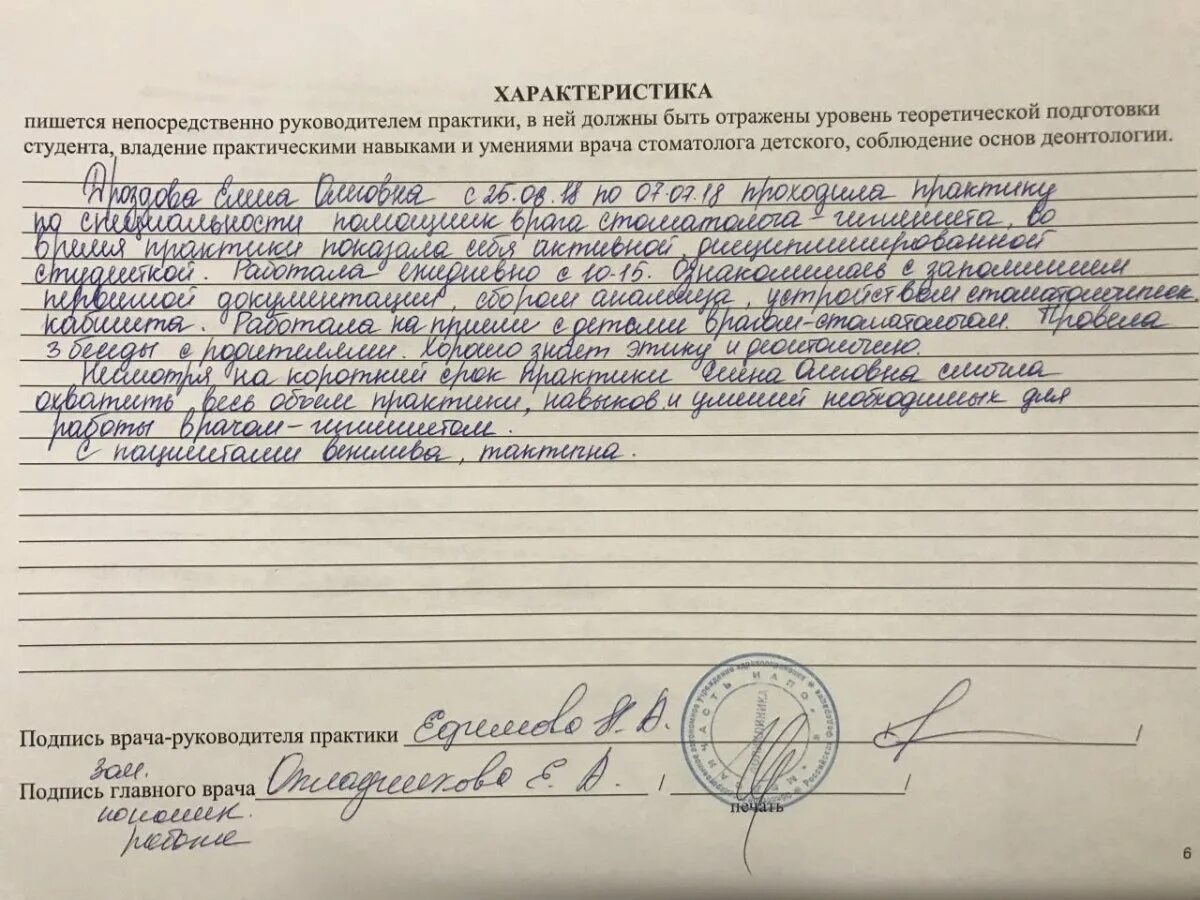 ХАРАКТЕРИСТИКА
пишется непосредственно руководителем практики, в ней должны быть отражены уровень теоретической подготовки
студента, владение практическими навыками и умениями врача стоматолога детского, соблюдение основ деонтологии.
Дроздова Елена Олеговна с 25.06.18 по 07.07.18 проходила практику
по специальности помощник врача стоматолога-гигиениста, во
время практики показала себя активной, дисциплинированной
студенткой. Работала ежедневно с 10-15. Ознакомилась с заполнением
первичной документации, сбором анамнеза, устройством стоматологическ
кабинета. Работала на приеме с детьми врачом-стоматологом. Провела
3 беседы с родителями. Хорошо знает этику и деонтологию.
Несмотря на короткий срок практики Елена Олеговна смогла
охватить весь объем практики, навыков и умений необходимых для
работы врачом-гигиенистом.
С пациентами вежлива, тактична.
Подпись врача-руководителя практики Ефимова Н.А. /
зам.
Подпись главного врача Е. А. / /
поликлиника
печать
работе
6